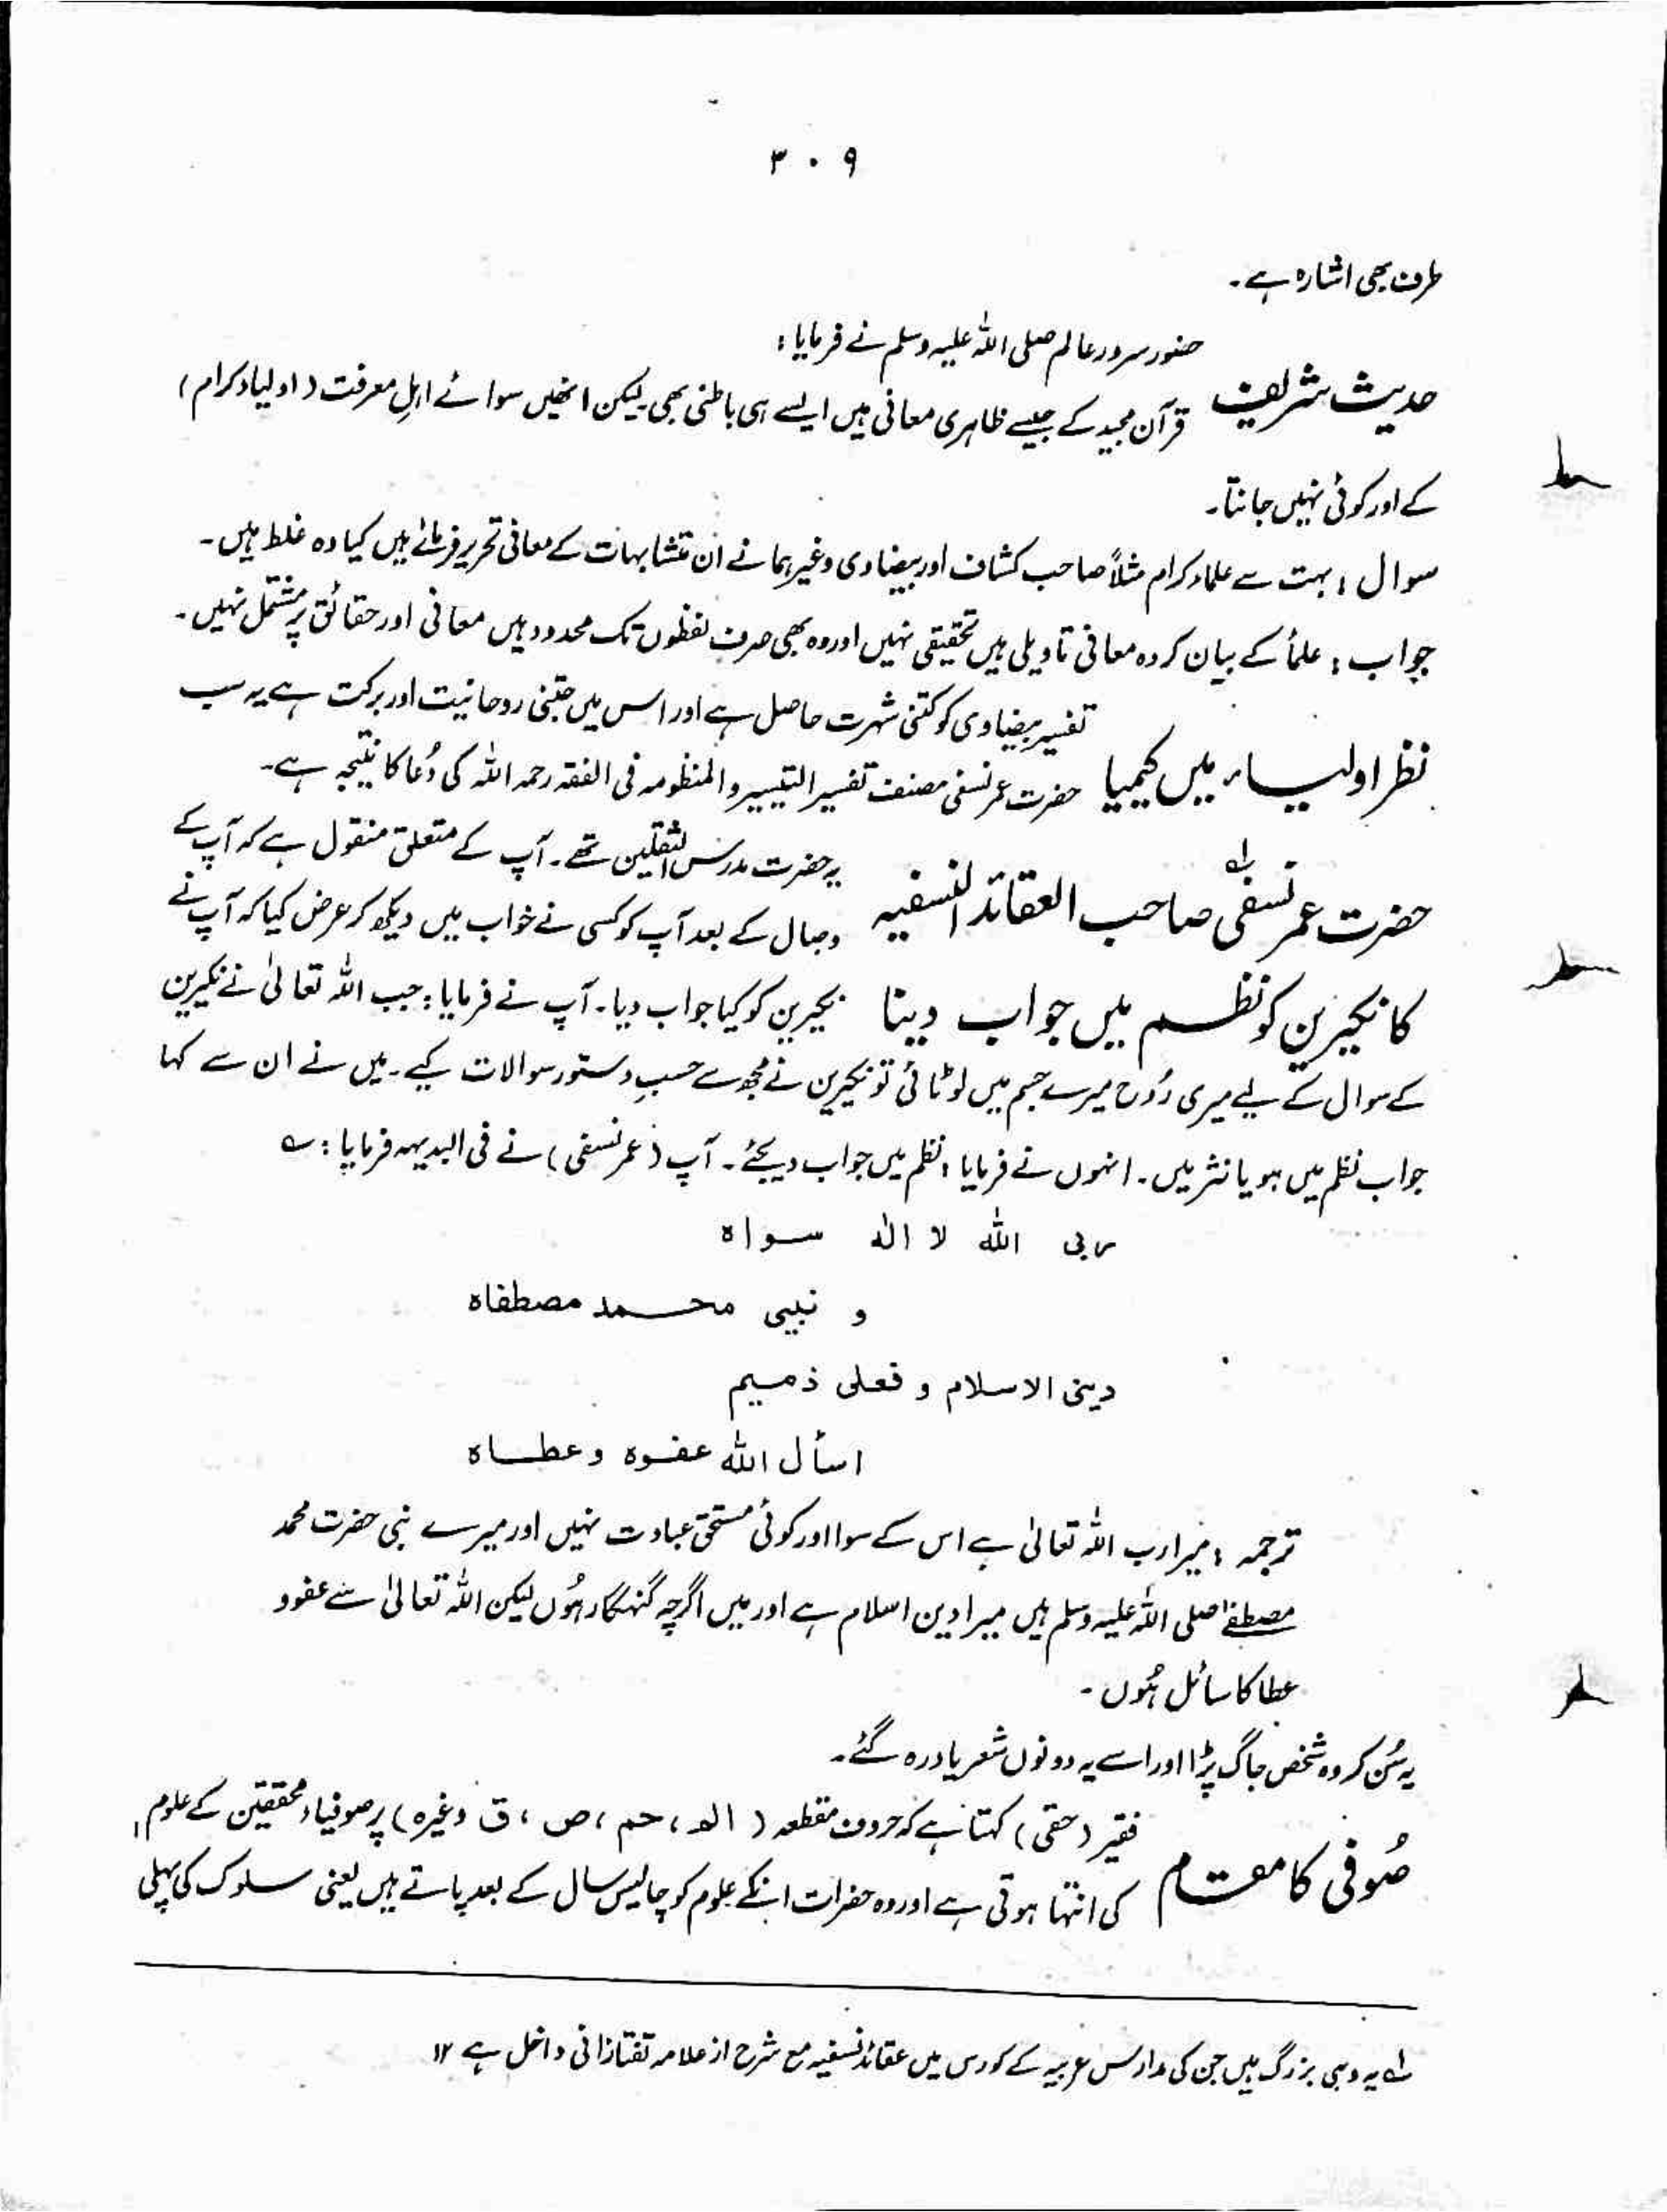 ۳۰۹
طرف بھی اشارہ ہے۔
حضور سرور عالم صلی اللہ علیہ وسلم نے فرمایا:
حدیث شریف
قرآن مجید کے جیسے ظاہری معانی ہیں ایسے ہی باطنی بھی لیکن انھیں سوائے اہلِ معرفت (اولیاء کرام)
کے اور کوئی نہیں جانتا۔
سوال: بہت سے علماء کرام مثلاً صاحب کشاف اور بیضاوی وغیرہما نے ان متشابہات کے معانی تحریر فرمائے ہیں کیا وہ غلط ہیں۔
جواب: علمأ کے بیان کردہ معانی تاویلی ہیں تحقیقی نہیں اور وہ بھی صرف لفظوں تک محدود ہیں معانی اور حقائق پر مشتمل نہیں۔
تفسیر بیضاوی کو کتنی شہرت حاصل ہے اور اس میں جتنی روحانیت اور برکت ہے یہ سب
نظر اولیاء میں کیمیا
حضرت عمر نسفی مصنف تفسیر التیسیر و المنظومہ فی الفقہ رحمہ اللہ کی دُعا کا نتیجہ ہے۔
یہ حضرت مدرس الثقلین تھے۔ آپ کے متعلق منقول ہے کہ آپ کے
حضرت عمر نسفی لہ صاحب العقائد النسفیہ
وصال کے بعد آپ کو کسی نے خواب میں دیکھ کر عرض کیا کہ آپ نے
کا نکیرین کو نظم میں جواب دینا
نکیرین کو کیا جواب دیا۔ آپ نے فرمایا: جب اللہ تعالیٰ نے نکیرین
کے سوال کے لیے میری رُوح میرے جسم میں لوٹائی تو نکیرین نے مجھ سے حسبِ دستور سوالات کیے۔ میں نے ان سے کہا
جواب نظم میں ہو یا نثر میں۔ انہوں نے فرمایا، نظم میں جواب دیجئے۔ آپ (عمر نسفی) نے فی البدیہہ فرمایا: ؎
ربی اللہ لا الٰہ سواہ
و نبیی محمد مصطفاہ
دینی الاسلام و فعلی ذمیم
اسأل اللہ عفوہ و عطاہ
ترجمہ: میرا رب اللہ تعالیٰ ہے اس کے سوا اور کوئی مستحق عبادت نہیں اور میرے نبی حضرت محمد
مصطفےٰ صلی اللہ علیہ وسلم ہیں میرا دین اسلام ہے اور میں اگرچہ گنہگار ہُوں لیکن اللہ تعالیٰ سے عفو و
عطا کا سائل ہُوں۔
یہ سُن کر وہ شخص جاگ پڑا اور اسے یہ دونوں شعر یاد رہ گئے۔
فقیر (حقی) کہتا ہے کہ حروف مقطعہ (الم، حم، ص، ق وغیرہ) پر صوفیاء محققین کے علوم
صُوفی کا مقام
کی انتہا ہوتی ہے اور وہ حضرات انکے علوم کو چالیس سال کے بعد پاتے ہیں یعنی سلوک کی پہلی
لہ یہ وہی بزرگ ہیں جن کی مدارس عربیہ کے کورس میں عقائد نسفیہ مع شرح از علامہ تفتازانی داخل ہے ۱۲